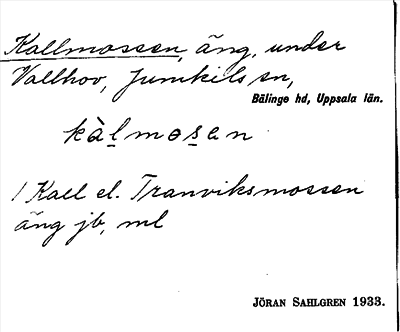 Kallmossen, äng, under
Vallhov, Jumkils sn,
Bälinge hd, Uppsala län.
kàl̠mos̠en
/ Kall el. Tranviksmossen
äng jb, ml
JÖRAN SAHLGREN 1933.